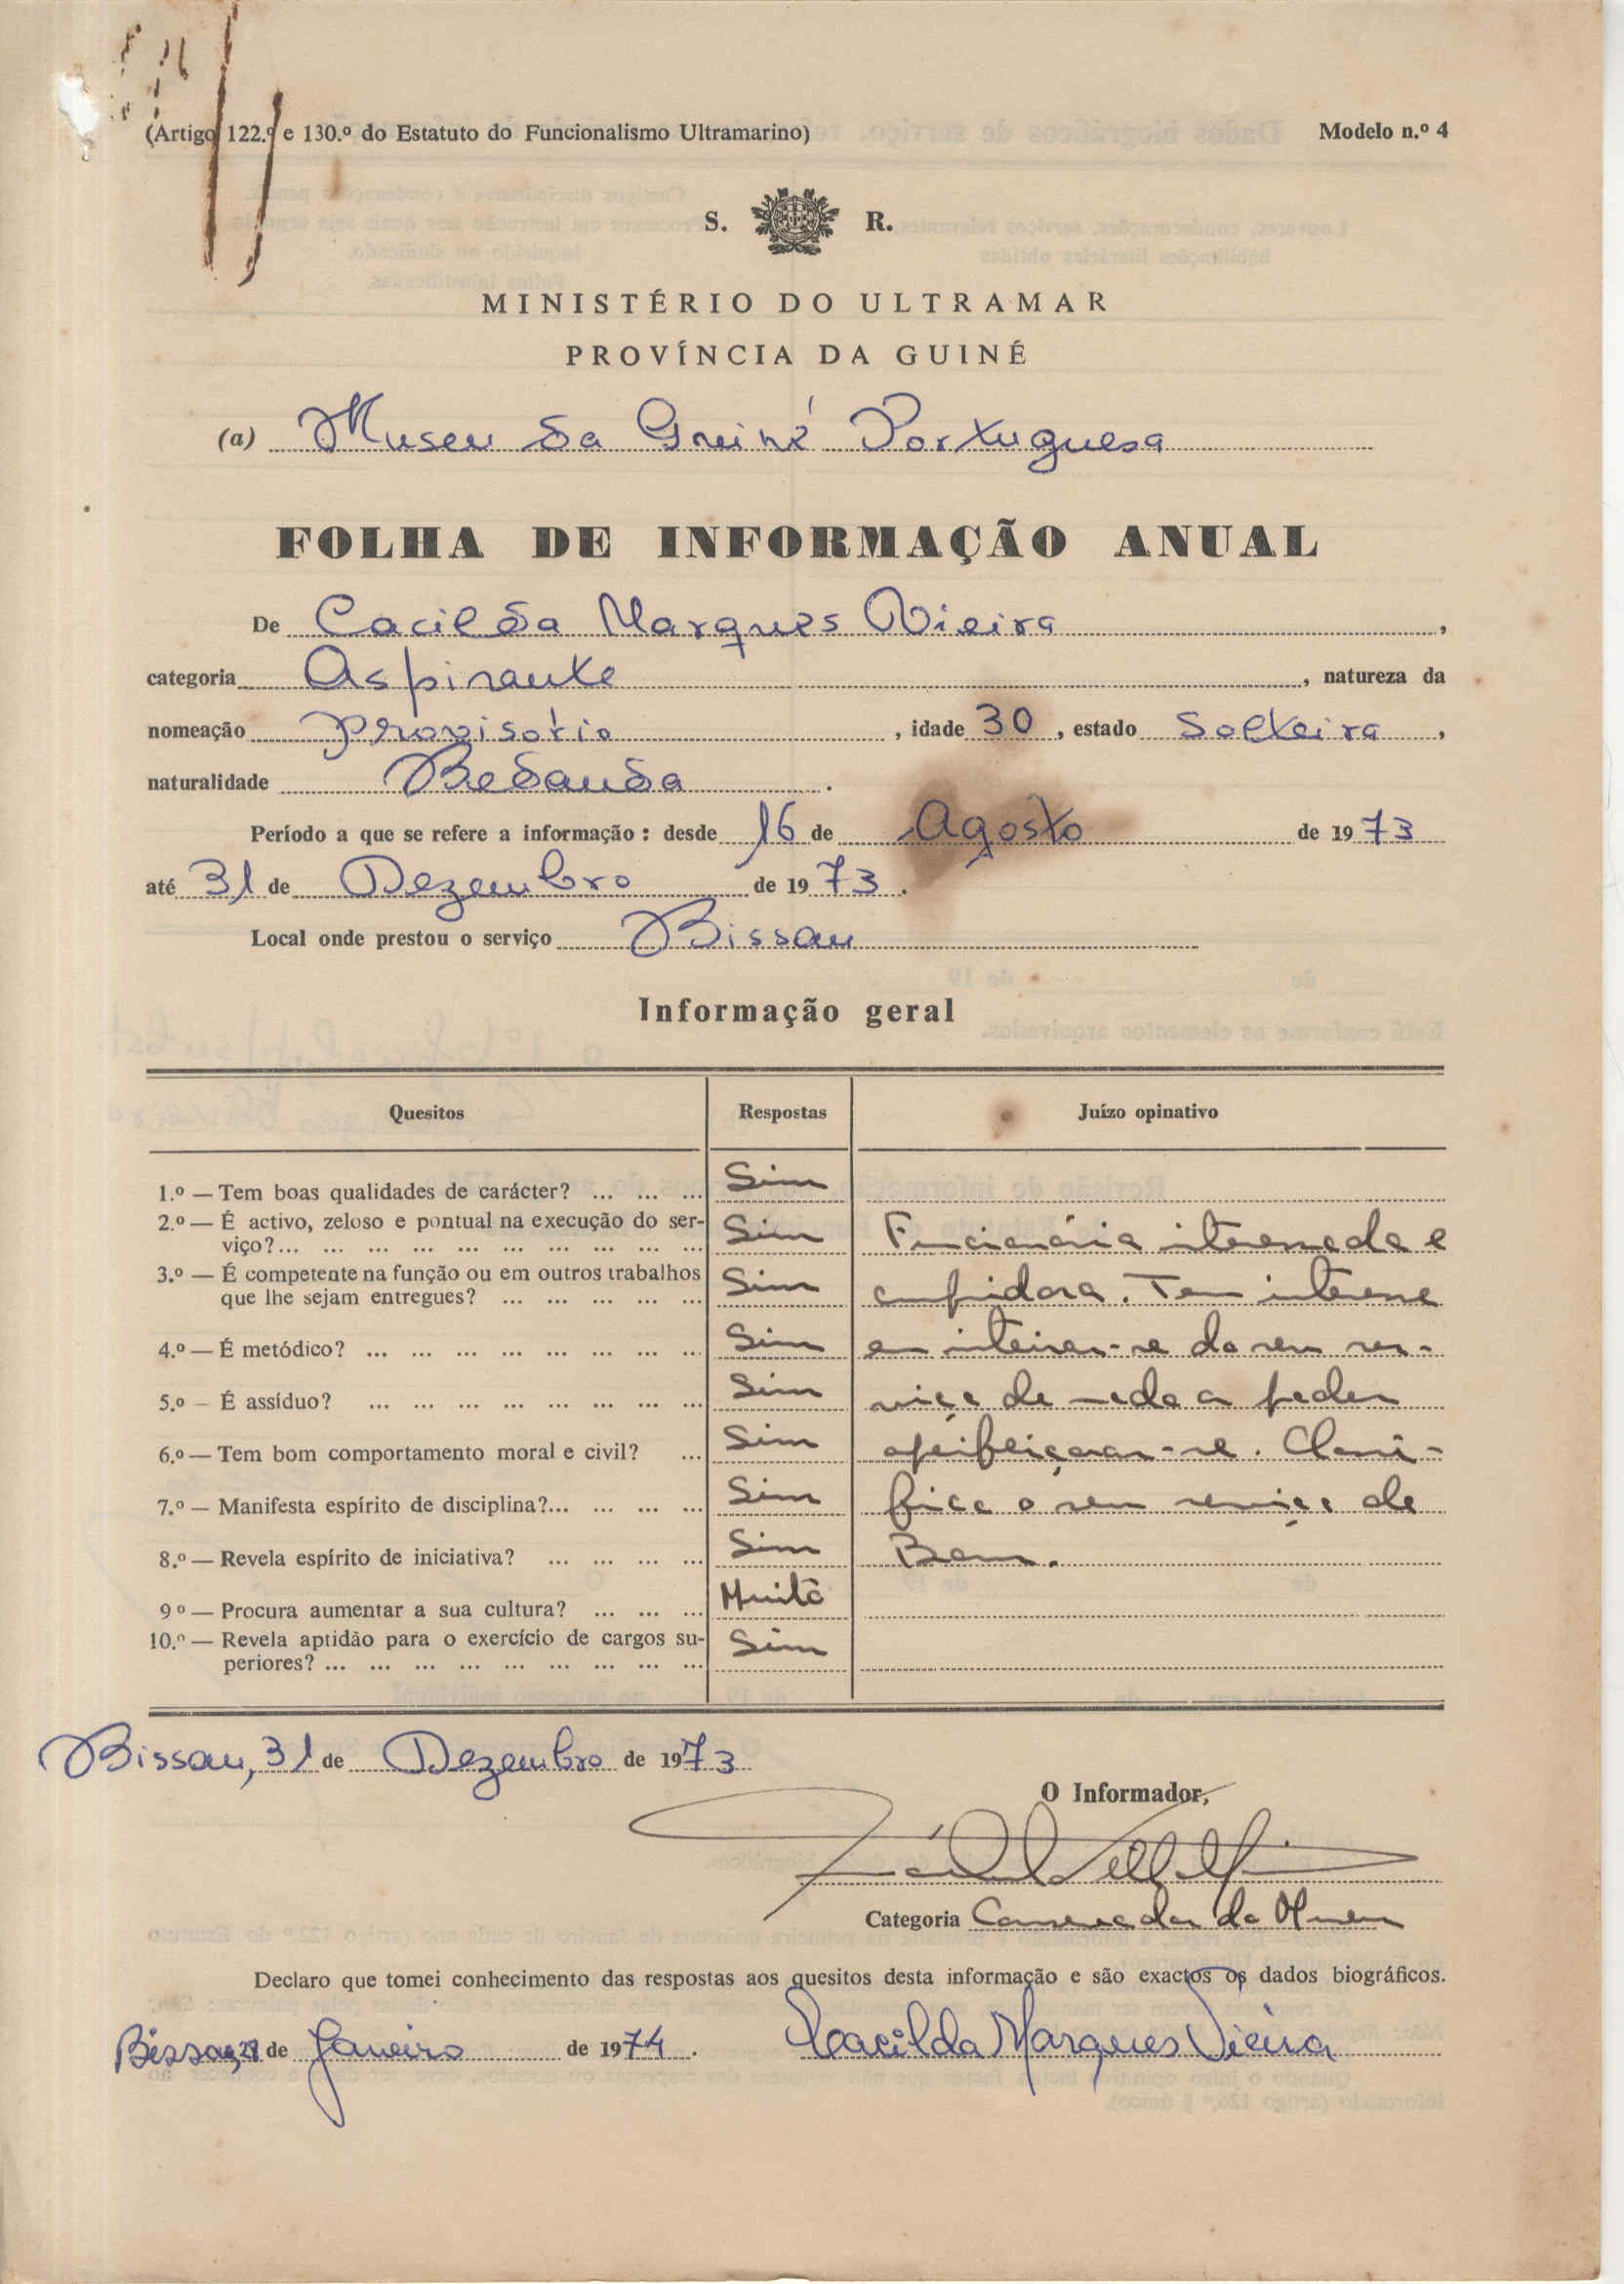 (Artigo 122.º e 130.º do Estatuto do Funcionalismo Ultramarino) Modelo n.º 4
S. R.
MINISTÉRIO DO ULTRAMAR
PROVÍNCIA DA GUINÉ
(a) Museu da Guiné Portuguesa
FOLHA DE INFORMAÇÃO ANUAL
De Cacilda Marques Vieira,
categoria Aspirante, natureza da
nomeação provisório, idade 30, estado Solteira,
naturalidade Bedanda.
Período a que se refere a informação: desde 16 de Agosto de 1973
até 31 de Dezembro de 1973.
Local onde prestou o serviço Bissau
Informação geral
Quesitos Respostas Juízo opinativo
1.º — Tem boas qualidades de carácter? ... ... ... Sim
2.º — É activo, zeloso e pontual na execução do ser-
viço?... ... ... ... ... ... ... ... ... ... Sim Funcionária interessada e
3.º — É competente na função ou em outros trabalhos
que lhe sejam entregues? ... ... ... ... ... Sim cumpridora. Tem interesse
4.º — É metódico? ... ... ... ... ... ... ... ... Sim em inteirar-se do seu ser-
5.º — É assíduo? ... ... ... ... ... ... ... ... Sim viço de modo a poder
6.º — Tem bom comportamento moral e civil? ... Sim aperfeiçoar-se. Classi-
7.º — Manifesta espírito de disciplina?... ... ... ... Sim fico o seu serviço de
8.º — Revela espírito de iniciativa? ... ... ... ... Sim Bom.
9º — Procura aumentar a sua cultura? ... ... ... Muito
10.º — Revela aptidão para o exercício de cargos su-
periores? ... ... ... ... ... ... ... ... ... Sim
Bissau, 31 de Dezembro de 1973
O Informador,
Categoria Conservador do Museu
Declaro que tomei conhecimento das respostas aos quesitos desta informação e são exactos os dados biográficos.
Bissau, 28 de Janeiro de 1974. Cacilda Marques Vieira